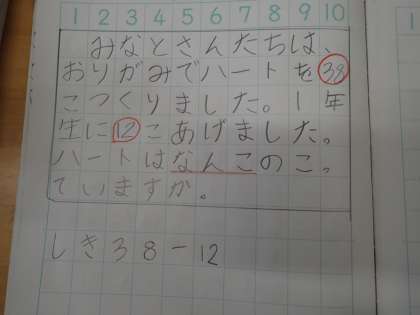 1 2 3 4 5 6 7 8 9 10
みなとさんたちは、
おりがみでハートを38
こつくりました。1年
生に12こあげました。
ハートはなんこのこっ
ていますか。
しき38-12
1